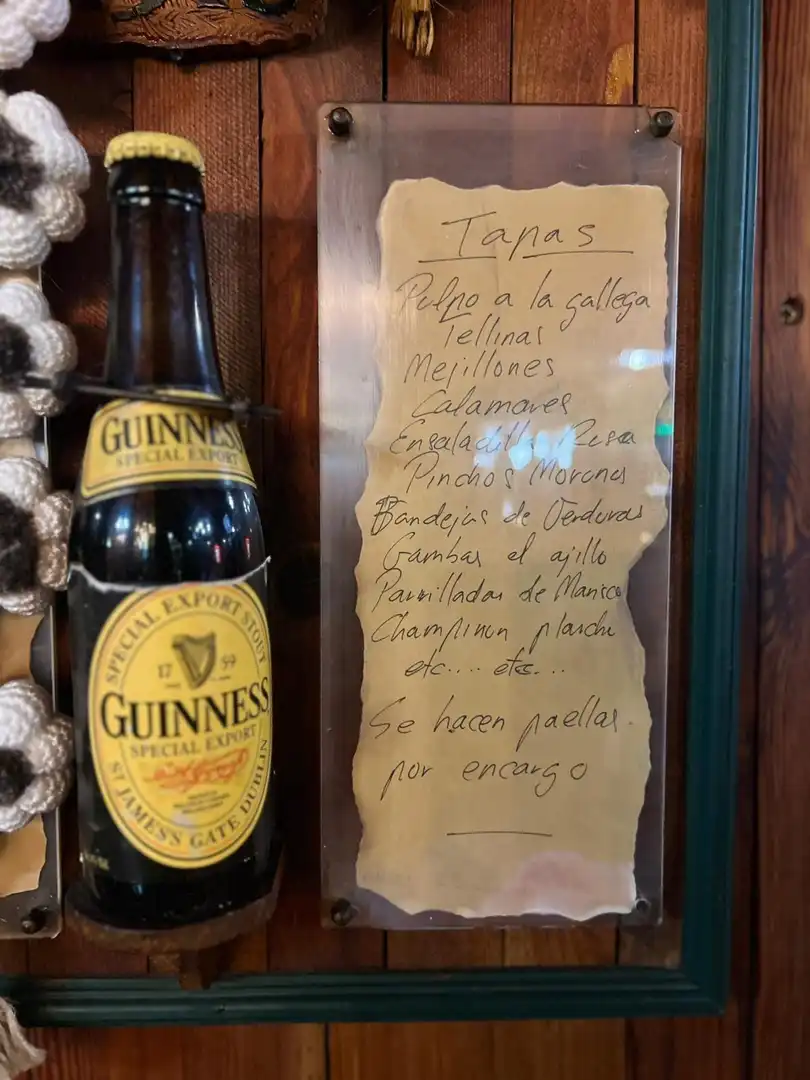 GUINNESS
SPECIAL EXPORT
SPECIAL EXPORT STOUT
17 59
GUINNESS
SPECIAL EXPORT
ST JAMES'S GATE DUBLIN
Tapas
Pulpo a la gallega
Tellinas
Mejillones
Calamares
Ensaladilla Rusa
Pinchos Morunos
Bandejas de Verduras
Gambas al ajillo
Parrilladas de Marisco
Champinon plancha
etc.... etc...
Se hacen paellas.
por encargo